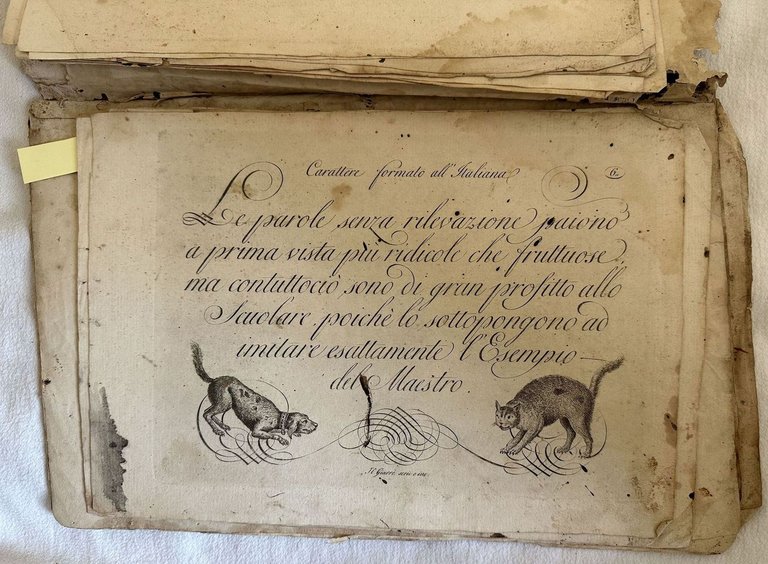 Carattere formato all'Italiana
6.
Le parole senza rilevazione paiono
a prima vista più ridicole che fruttuose,
ma contuttociò sono di gran profitto allo
Scuolare, poichè lo sottopongono ad
imitare esattamente l'Esempio
del Maestro.
scris. e inc.